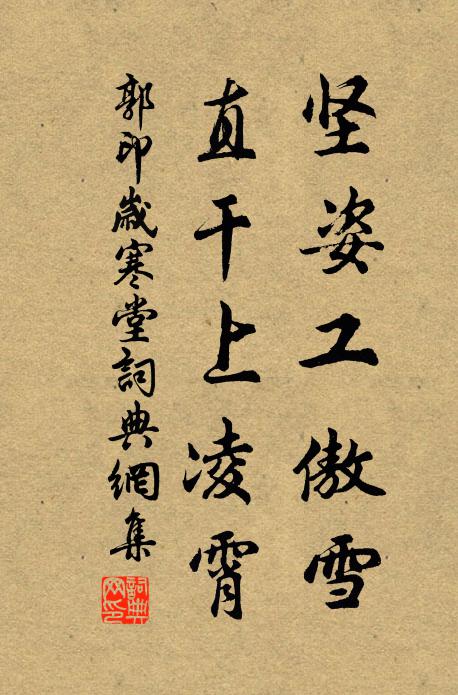 坚姿工傲雪
直干上凌霄
郭印歲寒堂詞典網集
詞典网印